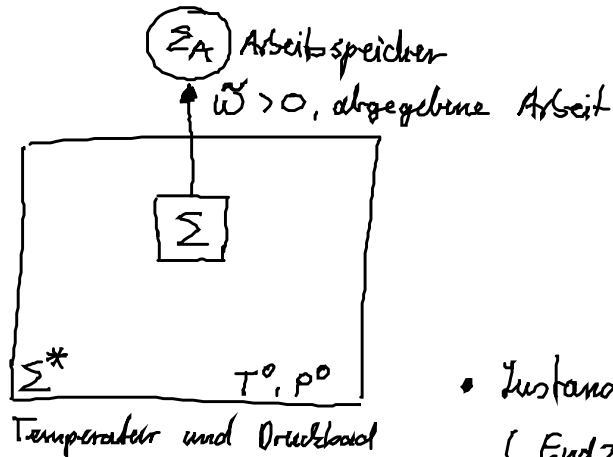 Σ_A Arbeitsspeicher
W̃ > 0, abgegebene Arbeit
Σ
Σ* T⁰, P⁰
Temperatur und Druckbad
•
( End